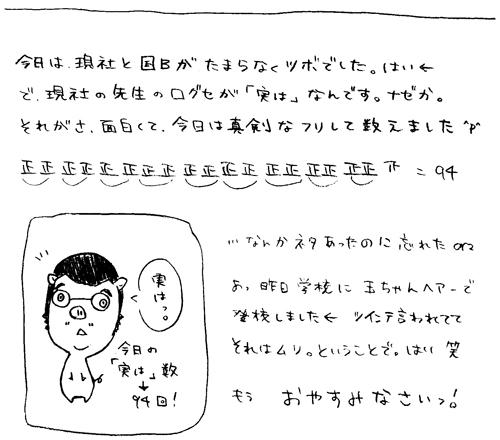 今日は、現社と国Bがたまらなくツボでした。はい←
で、現社の先生の口グセが「実は」なんです。ナゼか。
それがさ、面白くて、今日は真剣なフリして数えました ^p^
正正 正正 正正 正正 正正 正正 正正 正正 正正 下 = 94
実はっ。
今日の
「実は」数
↓
94回!
…なんかネタあったのに忘れた orz
あ、昨日学校に玉ちゃんヘアーで
登校しました← ツインテ言われてて
それはムリ。ということで。はい 笑
もう おやすみなさいっ!